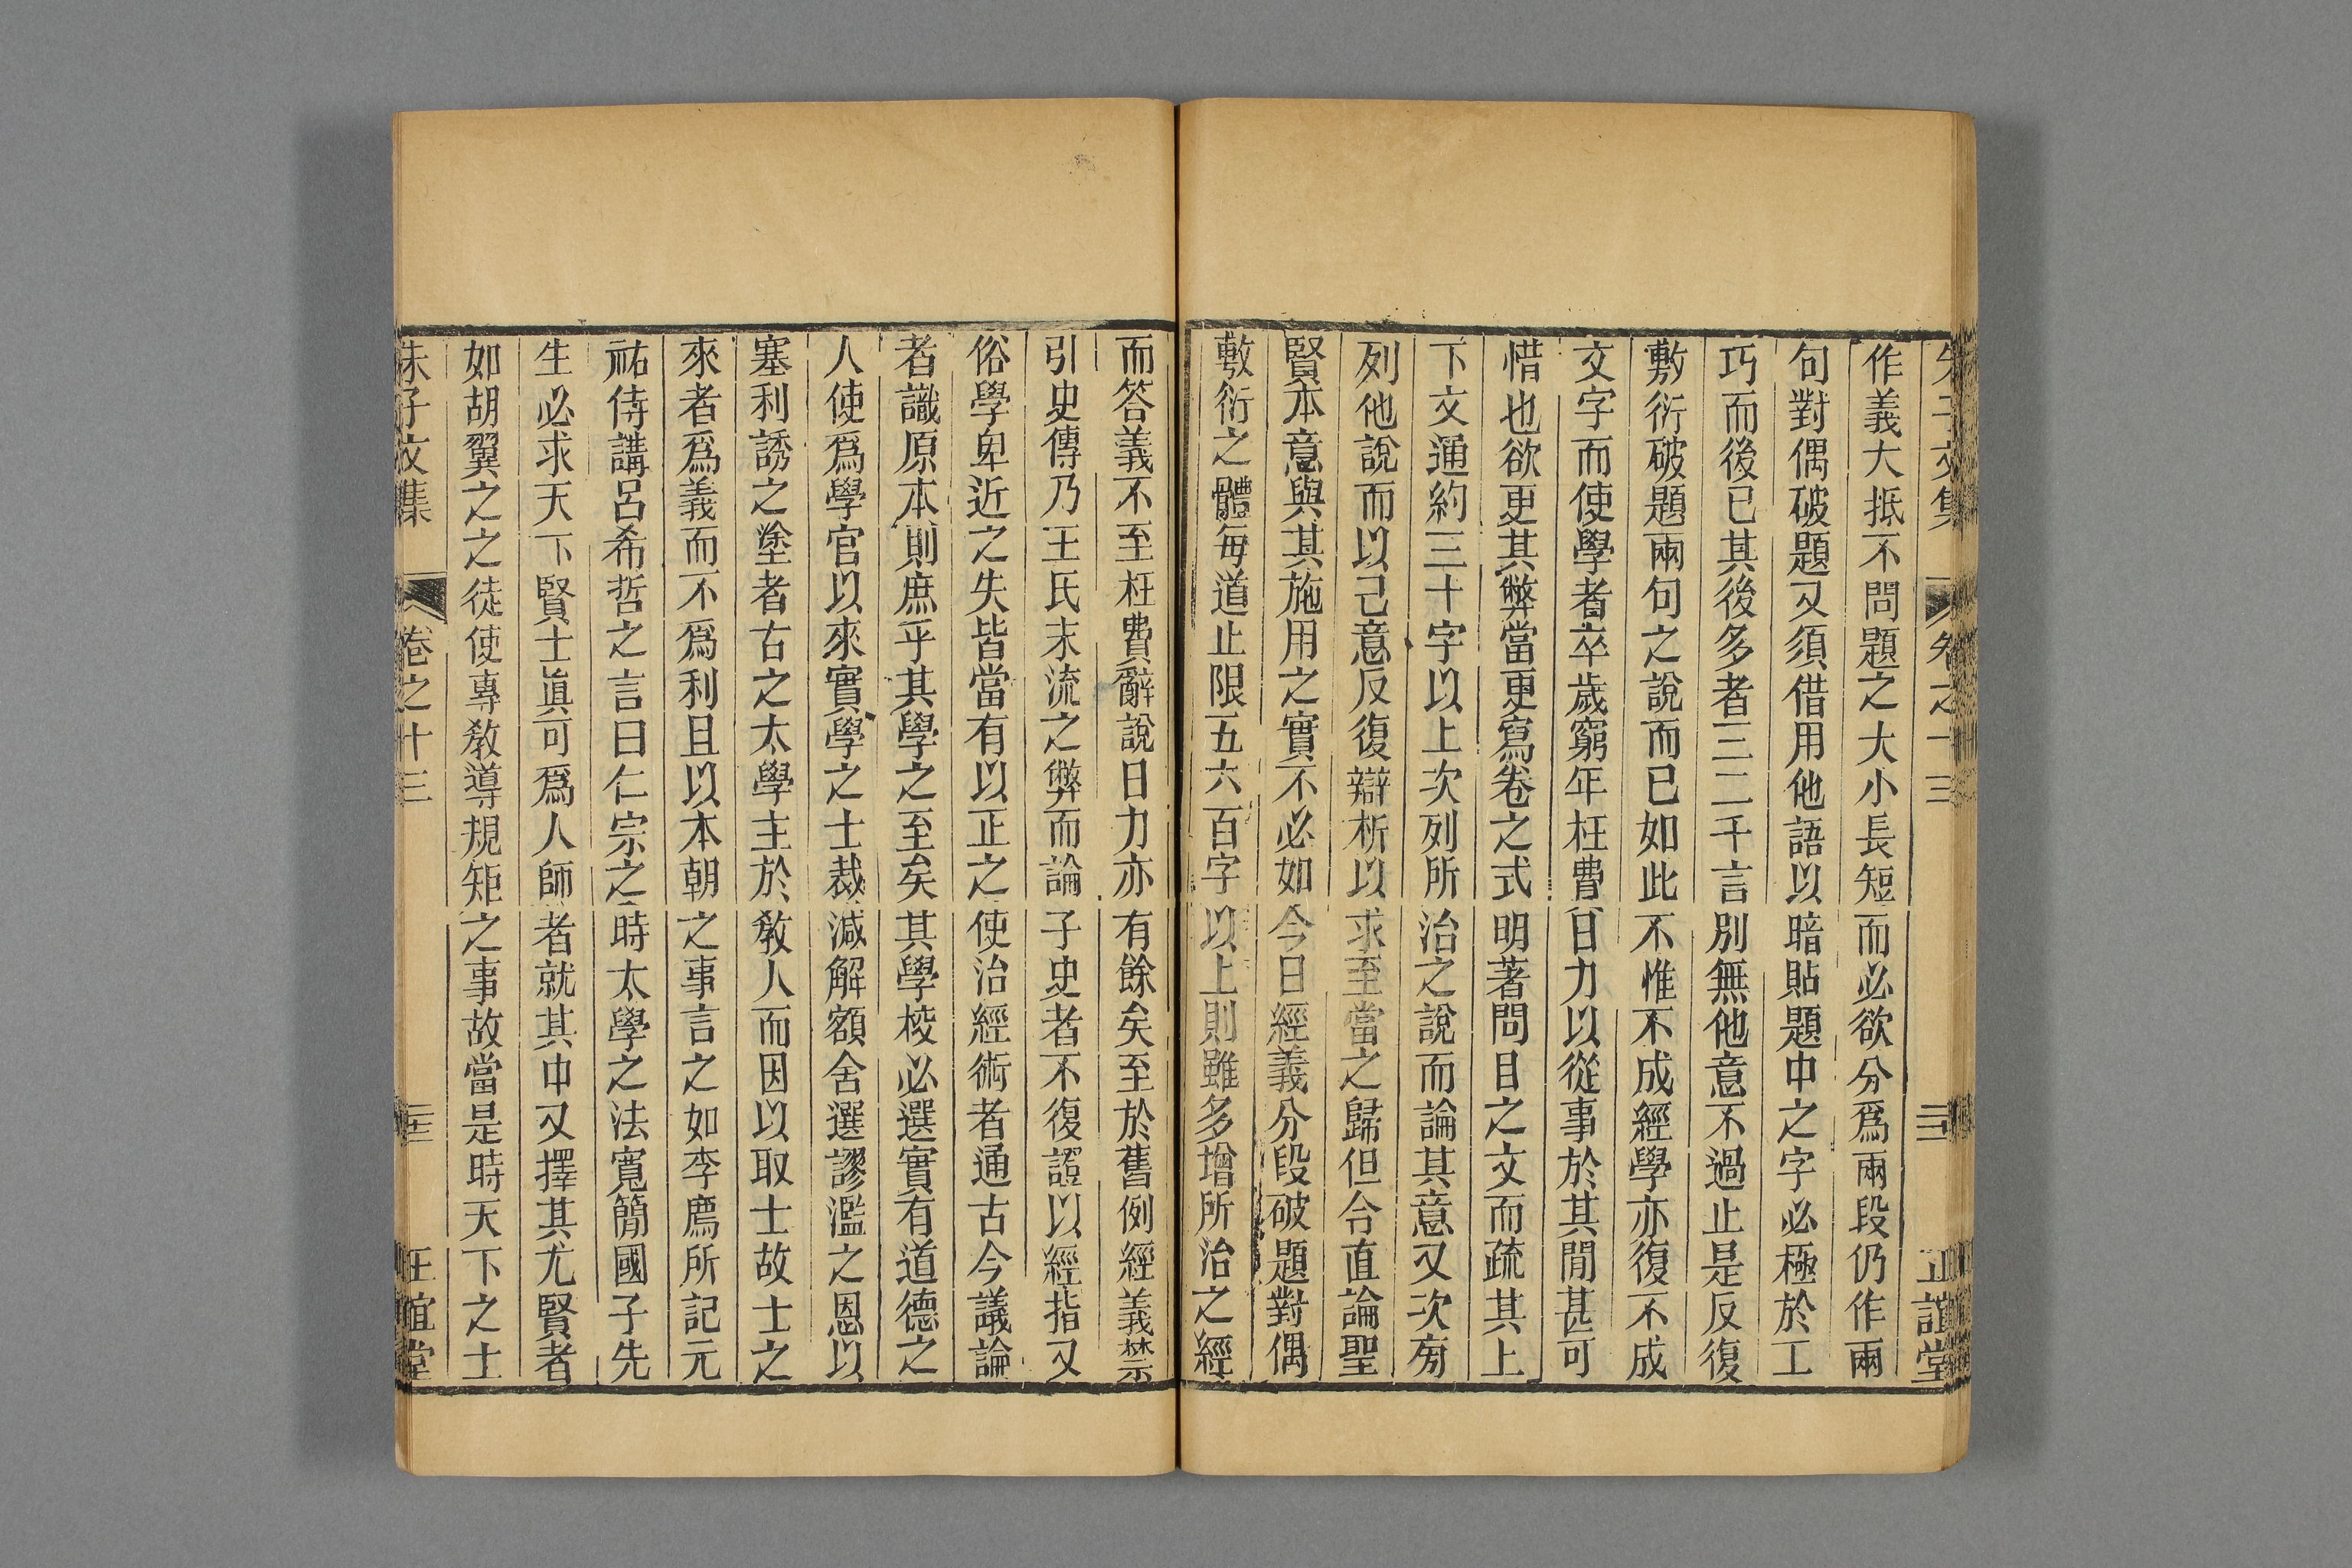 朱子文集 卷之十三 正誼堂
作義大抵不問題之大小長短而必欲分爲兩段仍作兩
句對偶破題又須借用他語以暗貼題中之字必極於工
巧而後已其後多者三二千言別無他意不過止是反復
敷衍破題兩句之說而已如此不惟不成經學亦復不成
文字而使學者卒歲窮年枉費日力以從事於其閒甚可
惜也欲更其弊當更寫卷之式明著問目之文而疏其上
下文通約三十字以上次列所治之說而論其意又次旁
列他說而以己意反復辯析以求至當之歸但令直論聖
賢本意與其施用之實不必如今日經義分段破題對偶
敷衍之體每道止限五六百字以上則雖多增所治之經
而答義不至枉費辭說日力亦有餘矣至於舊例經義禁
引史傳乃王氏末流之弊而論子史者不復證以經指又
俗學卑近之失皆當有以正之使治經術者通古今議論
者識原本則庶乎其學之至矣其學校必選實有道德之
人使爲學官以來實學之士裁減解額舍選謬濫之恩以
塞利誘之塗者古之太學主於敎人而因以取士故士之
來者爲義而不爲利且以本朝之事言之如李廌所記元
祐侍講呂希哲之言曰仁宗之時太學之法寬簡國子先
生必求天下賢士眞可爲人師者就其中又擇其尤賢者
如胡翼之之徒使專敎導規矩之事故當是時天下之士
朱子文集 卷之十三 正誼堂